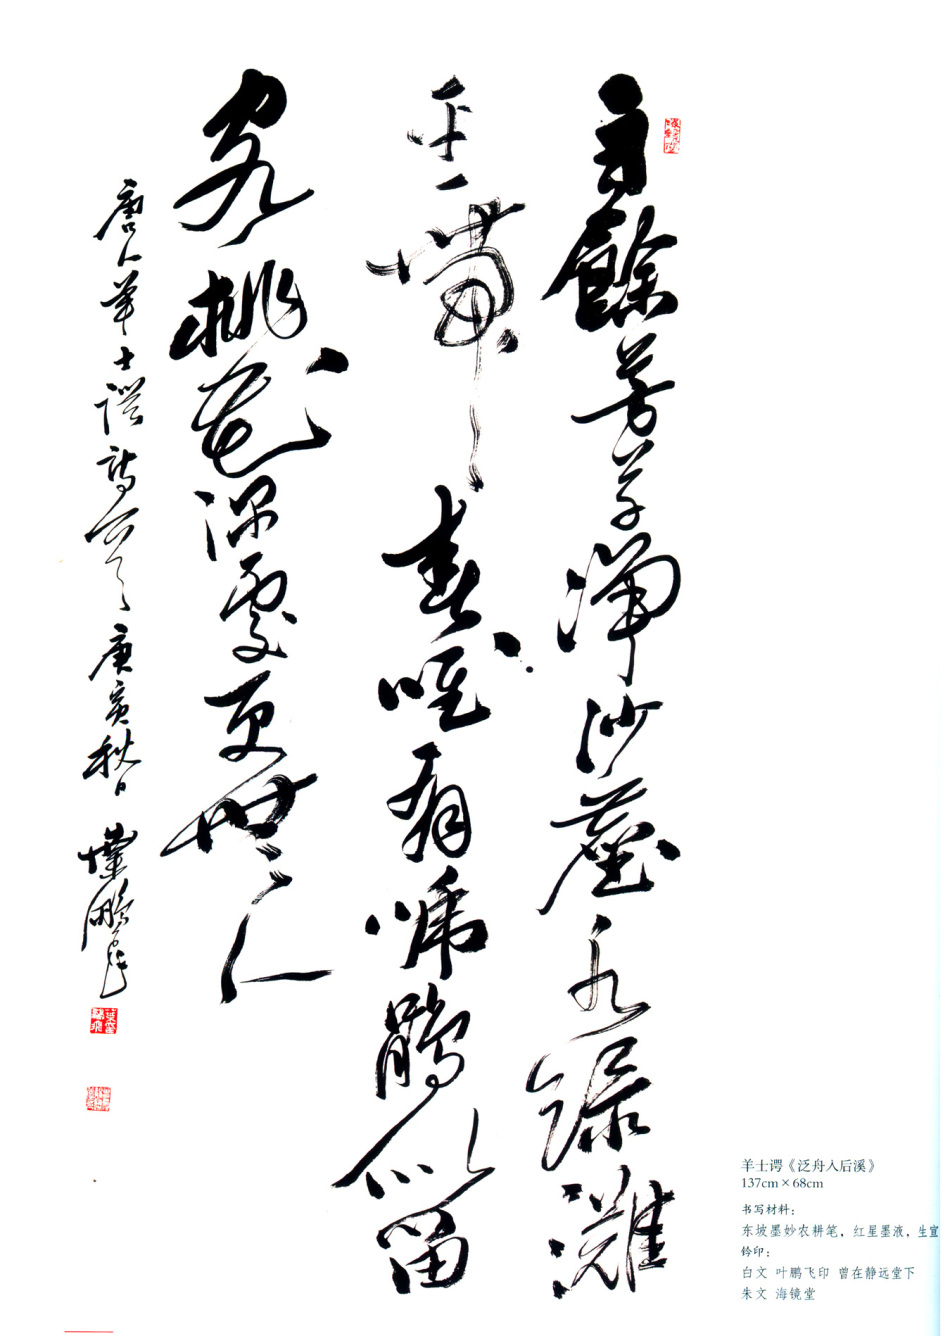 雨餘芳草淨沙塵水綠灘
平一帶春唯有啼鵑似留
客桃花深處更無人
唐人羊士諤詩一首庚寅秋日葉鵬飛
羊士谔《泛舟入后溪》
137cm×68cm
书写材料：
东坡墨妙农耕笔，红星墨液，生宣
钤印：
白文 叶鹏飞印 曾在静远堂下
朱文 海镜堂